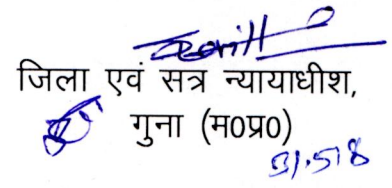 जिला एवं सत्र न्यायाधीश,
गुना (म0प्र0)
31.5.18